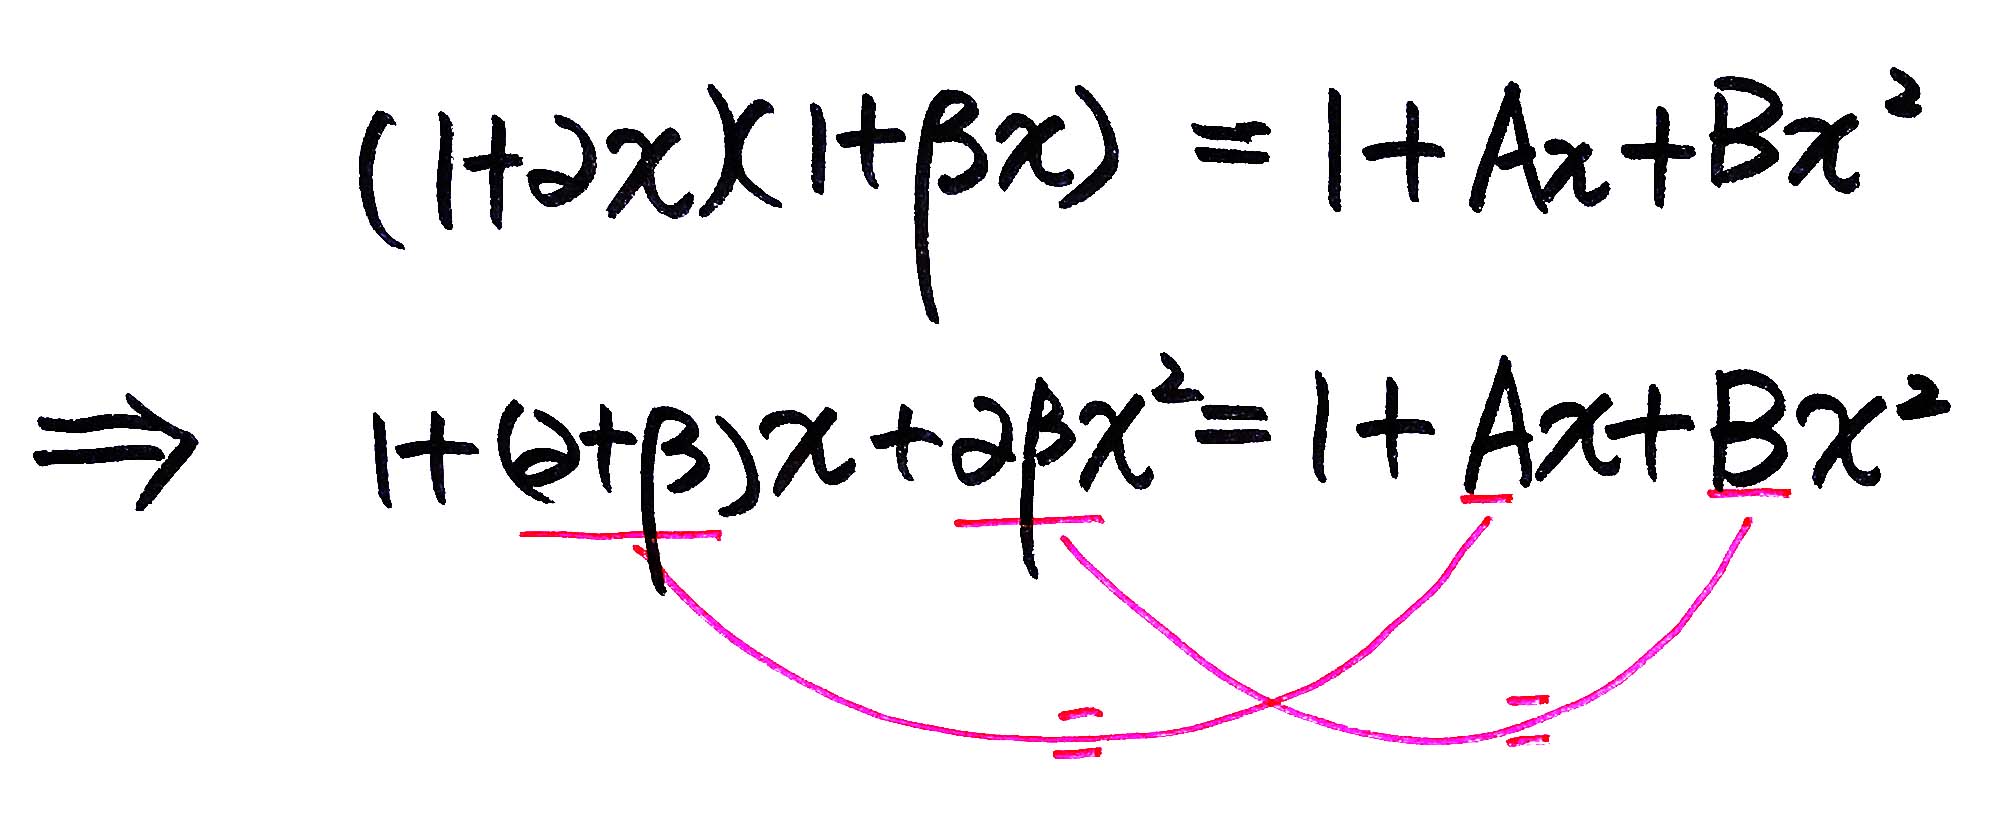 (1+αx)(1+βx) = 1+Ax+Bx²
⇒ 1+(α+β)x+αβx² = 1+Ax+Bx²
= =